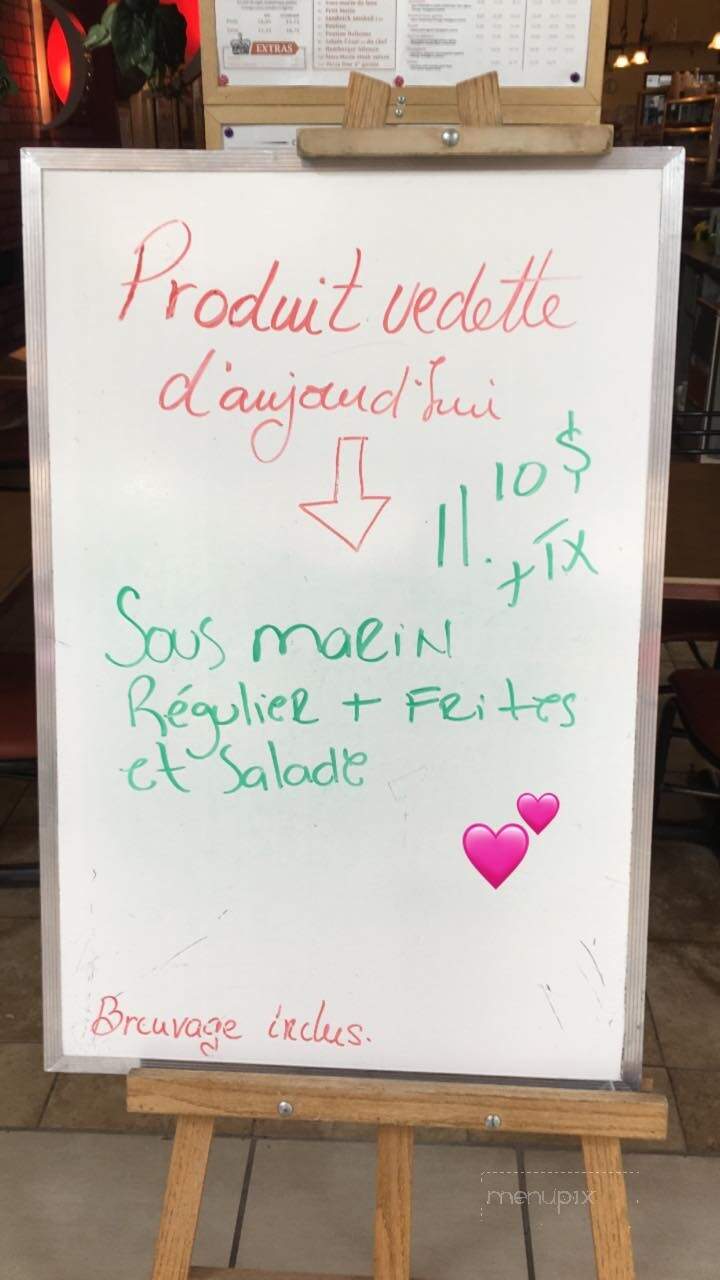 EXTRAS
Produit vedette
d'aujourd'hui
11.10$
+ TX
Sous marin
Régulier + Frites
et Salade
Breuvage inclus.
menupix